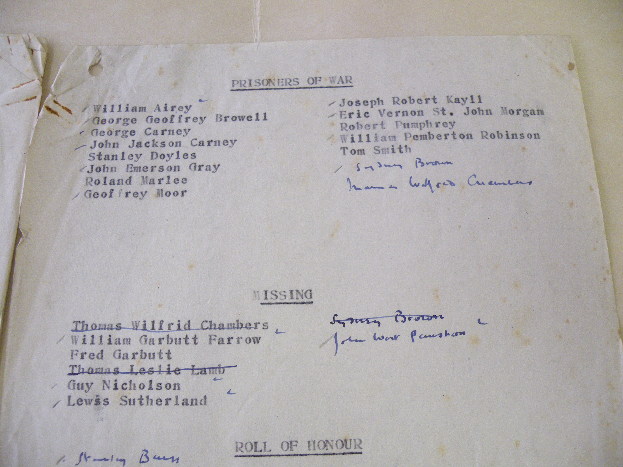 PRISONERS OF WAR
William Airey
George Geoffrey Browell
George Carney
John Jackson Carney
Stanley Doyles
John Emerson Gray
Roland Marlee
Geoffrey Moor
Joseph Robert Kayll
Eric Vernon St. John Morgan
Robert Pumphrey
William Pemberton Robinson
Tom Smith
Sydney Brown
Wilfrid Chambers
MISSING
Thomas Wilfrid Chambers
William Garbutt Farrow
Fred Garbutt
Thomas Leslie Lamb
Guy Nicholson
Lewis Sutherland
Sydney Brown
John
ROLL OF HONOUR
Stanley